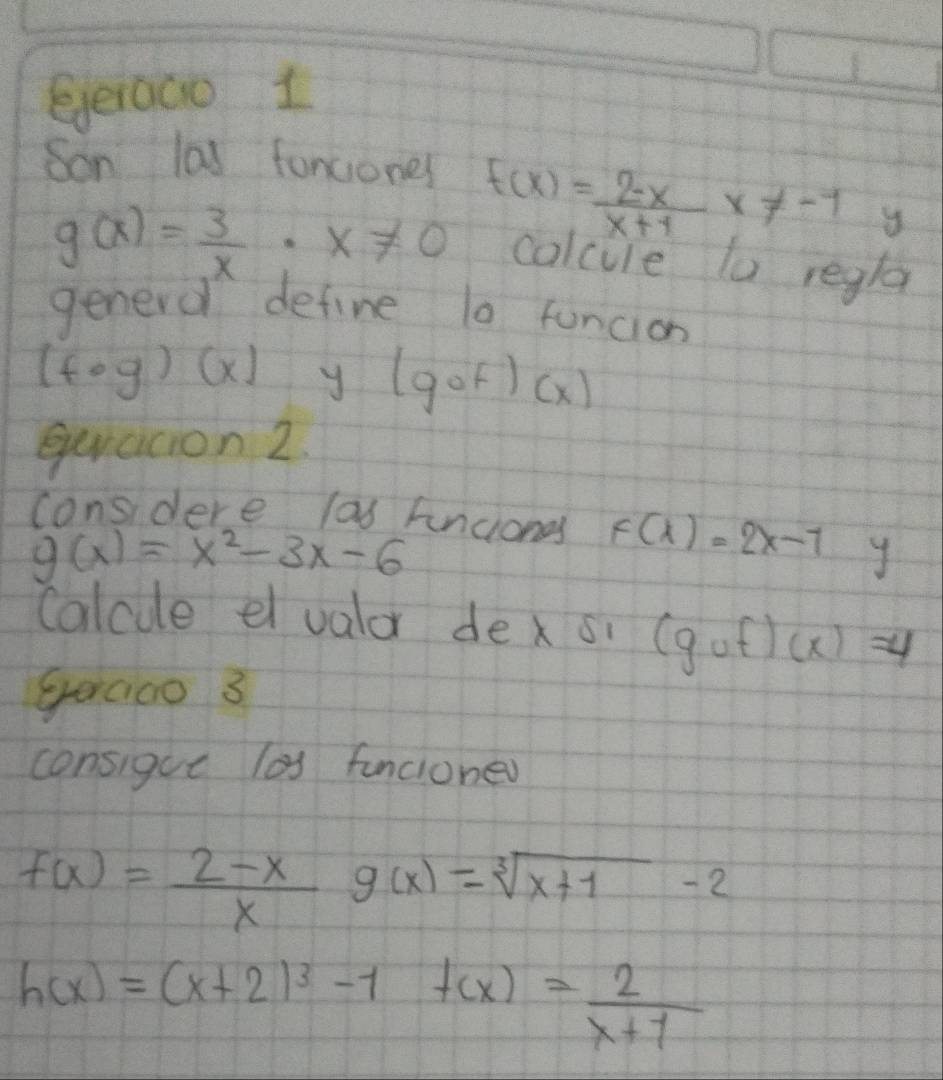 Ejercicio 1
Son las funciones f(x) = \frac{2-x}{x+1} x ≠ -1 y
g(x) = \frac{3}{x} . x ≠ 0 calcule la regla
general define la funcion
(f∘g)(x) y (g∘f)(x)
2.
considere las funciones f(x) = 2x-1 y
g(x) = x² - 3x - 6
Calcule el valor de x si (g∘f)(x) = 4
Ejercicio 3
consigue las funciones
f(x) = \frac{2-x}{x} g(x) = ∛(x+1) - 2
h(x) = (x+2)³ - 1 t(x) = \frac{2}{x+1}